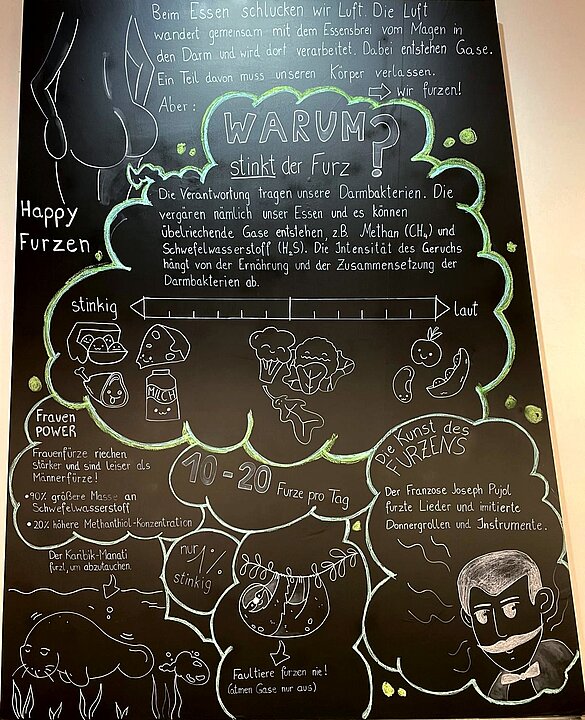 Beim Essen schlucken wir Luft. Die Luft
wandert gemeinsam mit dem Essensbrei vom Magen in
den Darm und wird dort verarbeitet. Dabei entstehen Gase.
Ein Teil davon muss unseren Körper verlassen.
⇨ wir furzen!
Aber:
WARUM?
stinkt der Furz
Happy
Furzen
Die Verantwortung tragen unsere Darmbakterien. Die
vergären nämlich unser Essen und es können
übelriechende Gase entstehen, z.B. Methan (CH₄) und
Schwefelwasserstoff (H₂S). Die Intensität des Geruchs
hängt von der Ernährung und der Zusammensetzung der
Darmbakterien ab.
stinkig
laut
MILCH
Frauen
POWER
Frauenfürze riechen
stärker und sind leiser als
Männerfürze!
• 90% größere Masse an
Schwefelwasserstoff
• 20% höhere Methanthiol-Konzentration
10-20 Furze pro Tag
nur
1%
stinkig
Die Kunst des
FURZENS
Der Franzose Joseph Pujol
furzte Lieder und imitierte
Donnergrollen und Instrumente.
Der Karibik-Manati
furzt, um abzutauchen.
Faultiere furzen nie!
(atmen Gase nur aus)